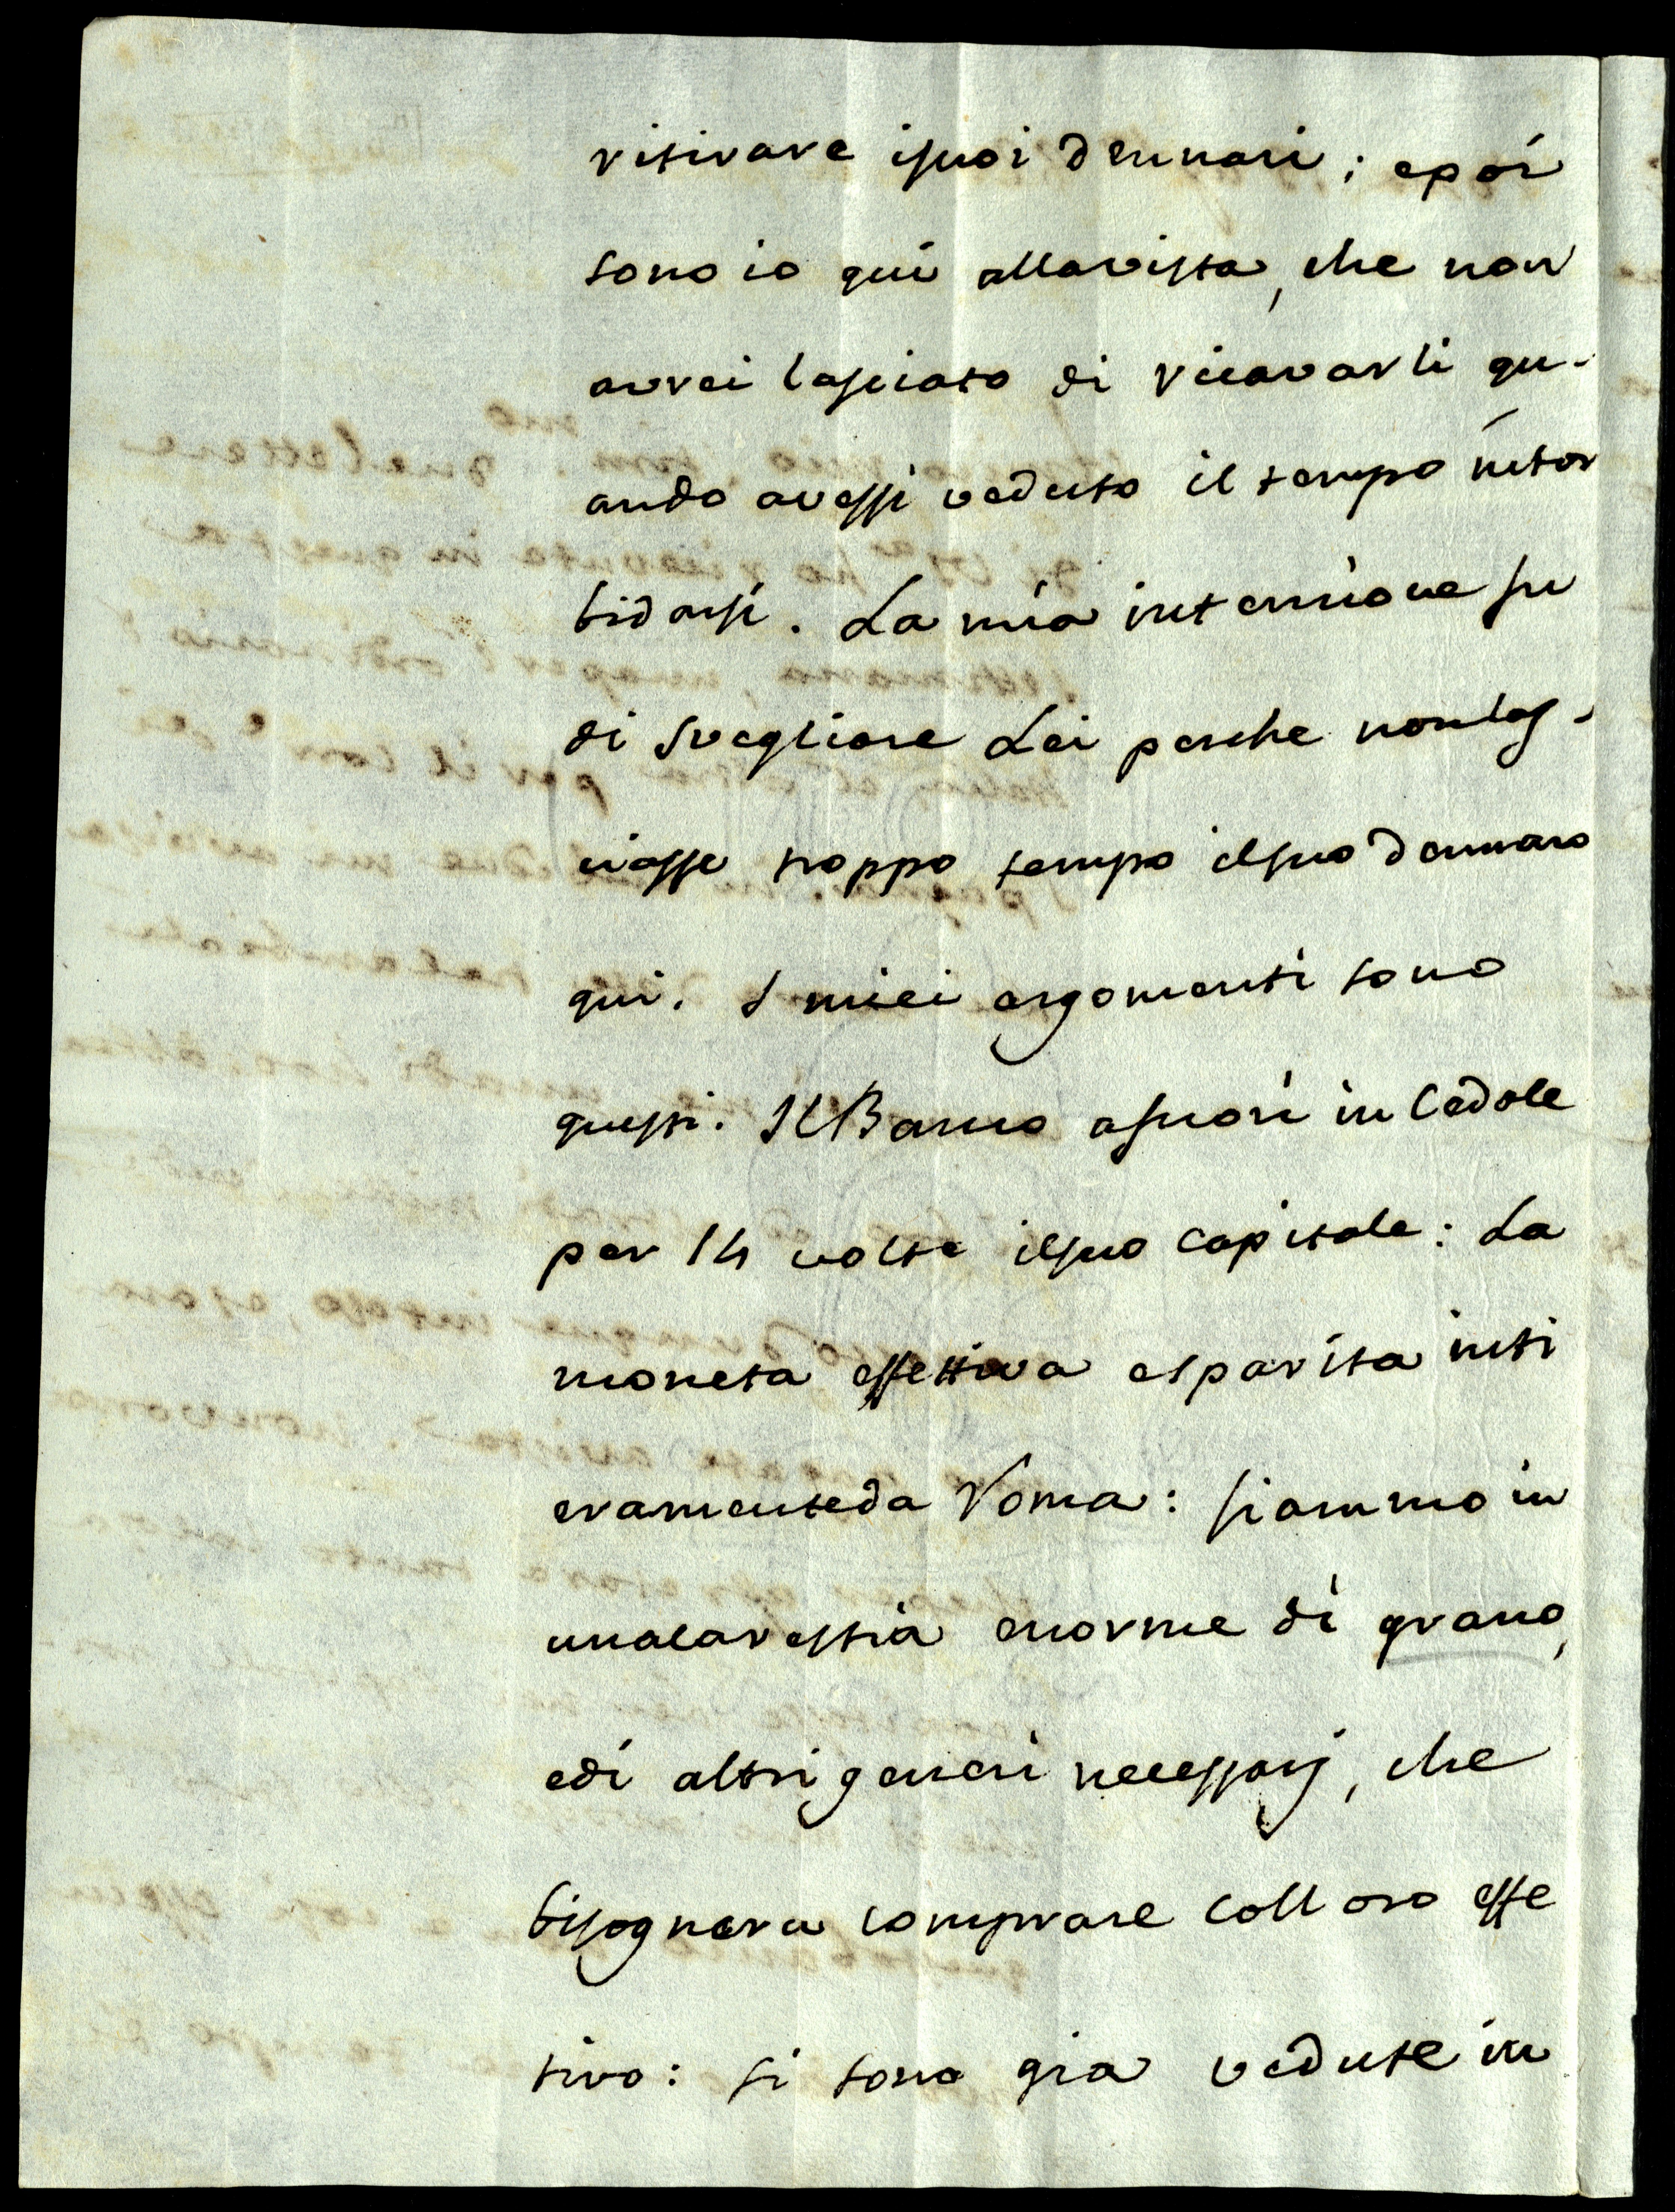 ritirare isuoi dennari; epoi
sono io qui allavista, che non
avrei lasciato di ricavarli qu-
ando avessi veduto il tempo intor
bidarsi. La mia intenzione fu
di svegliare Lei perche nonlas-
ciasse troppo tempo ilsuo dennaro
qui. I miei argomenti sono
questi. Il Banco a fuori in Cedole
per 14 volte ilsuo capitale: La
moneta effettiva esparita inti
eramenteda Roma: siammo in
unacarestia enorme di grano,
edi altri generi necessarj, che
bisognera comprare coll oro effe
tivo: si sono gia vedute in